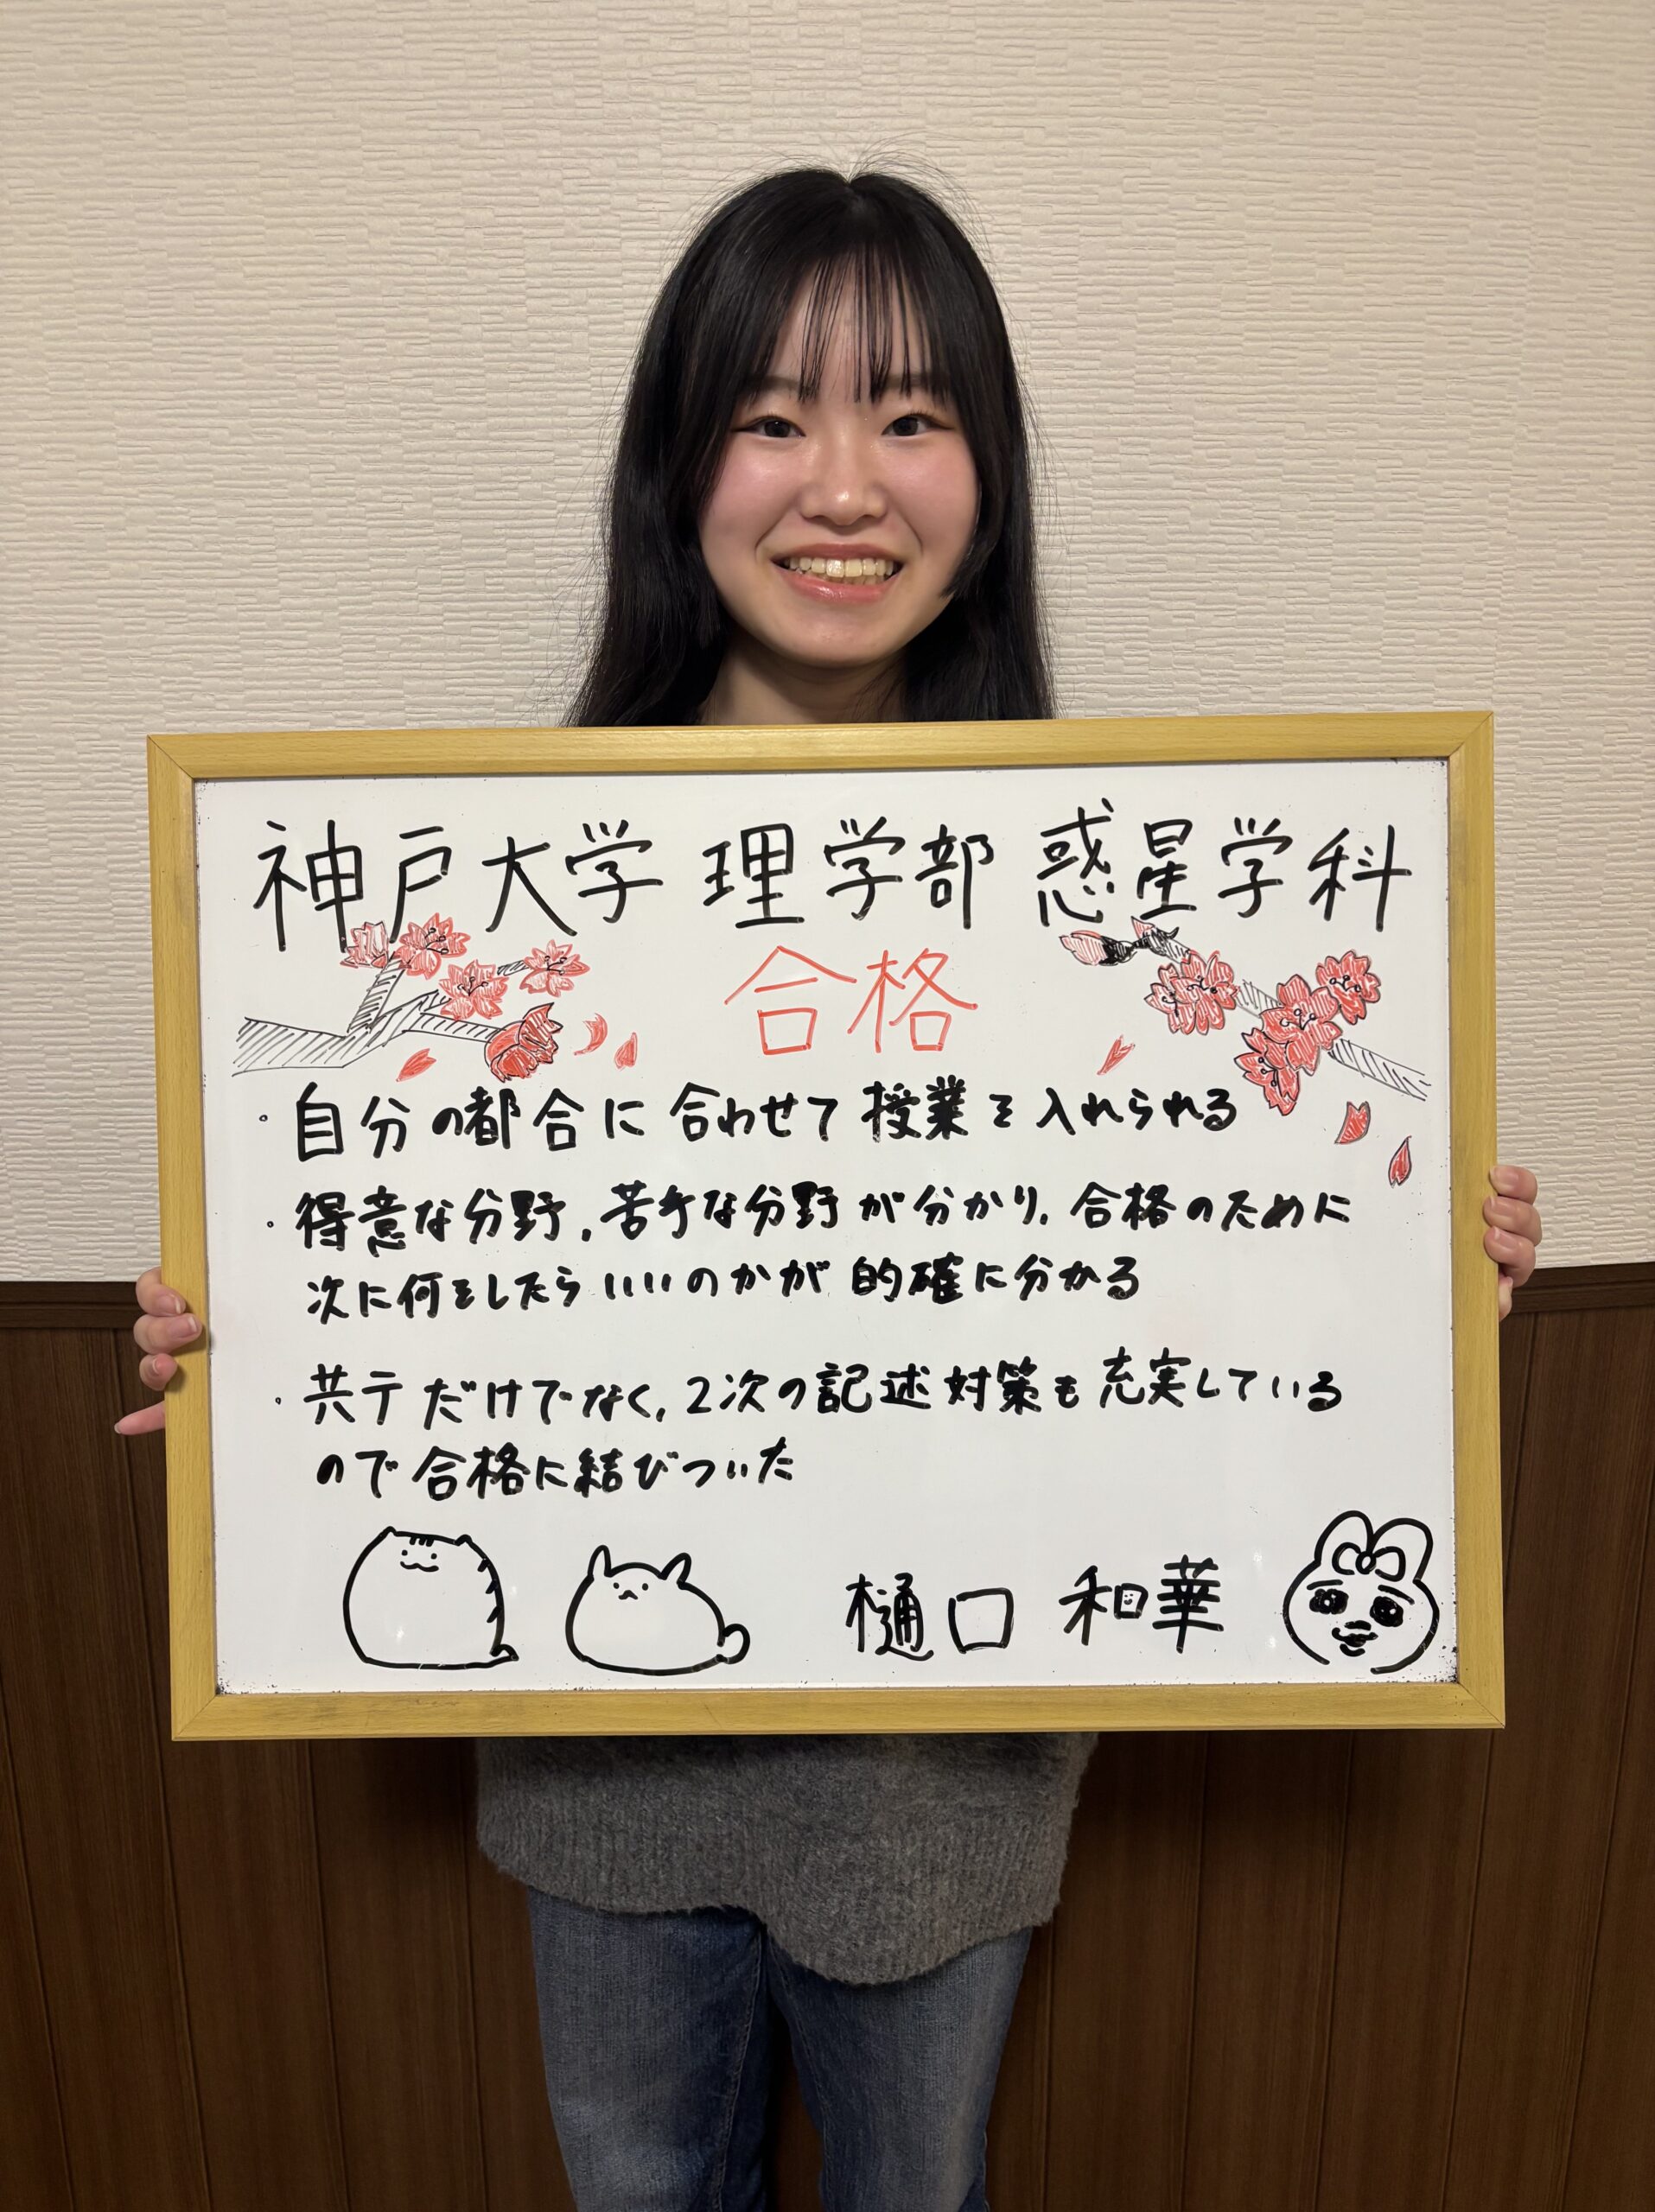 神戸大学 理学部 惑星学科
合格
・自分の都合に合わせて授業を入れられる
・得意な分野、苦手な分野が分かり、合格のために
次に何をしたらいいのかが的確に分かる
・共テだけでなく、2次の記述対策も充実している
ので合格に結びついた
樋口 和華